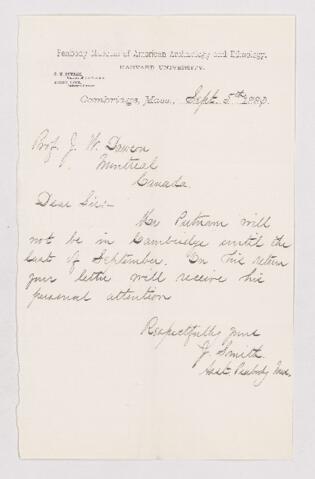 Peabody Museum of American Archæology and Ethnology,
HARVARD UNIVERSITY.
Cambridge, Mass., Sept. 5th 1880.
Prof. J. W. Dawson
Montreal
Canada.
Dear Sir:-
Mr Putnam will
not be in Cambridge until the
last of September. On his return
your letter will receive his
personal attention
Respectfully yours
J. Smith.
Asst. Peabody Mus.